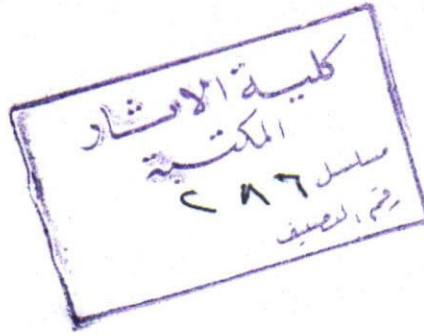 كلية الآثار
المكتبة
مسلسل ٢٨٦
رقم التصنيف